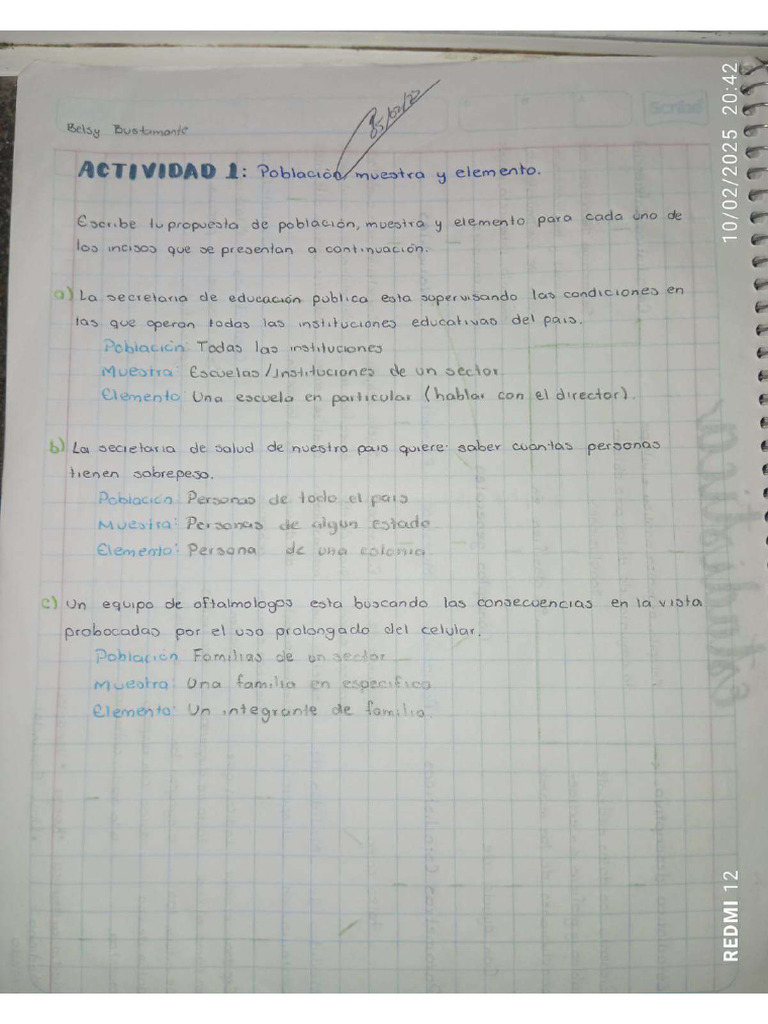 Scribe
Belsy Bustamante
ACTIVIDAD 1: Población, muestra y elemento.
Escribe tu propuesta de población, muestra y elemento para cada uno de
los incisos que se presentan a continuación.
a) La secretaria de educación publica esta supervisando las condiciones en
las que operan todas las instituciones educativas del pais.
Población: Todas las instituciones
Muestra: Escuelas/Instituciones de un sector.
Elemento: Una escuela en particular (hablar con el director).
b) La secretaria de salud de nuestro pais quiere saber cuantas personas
tienen sobrepeso.
Población Personas de todo el pais
Muestra: Personas de algun estado
Elemento: Persona de una colonia
c) Un equipo de oftalmologos esta buscando las consecuencias en la vista
probocadas por el uso prolongado del celular.
Población Familias de un sector
Muestra: Una familia en especifico
Elemento: Un integrante de familia.
10/02/2025 20:42
REDMI 12